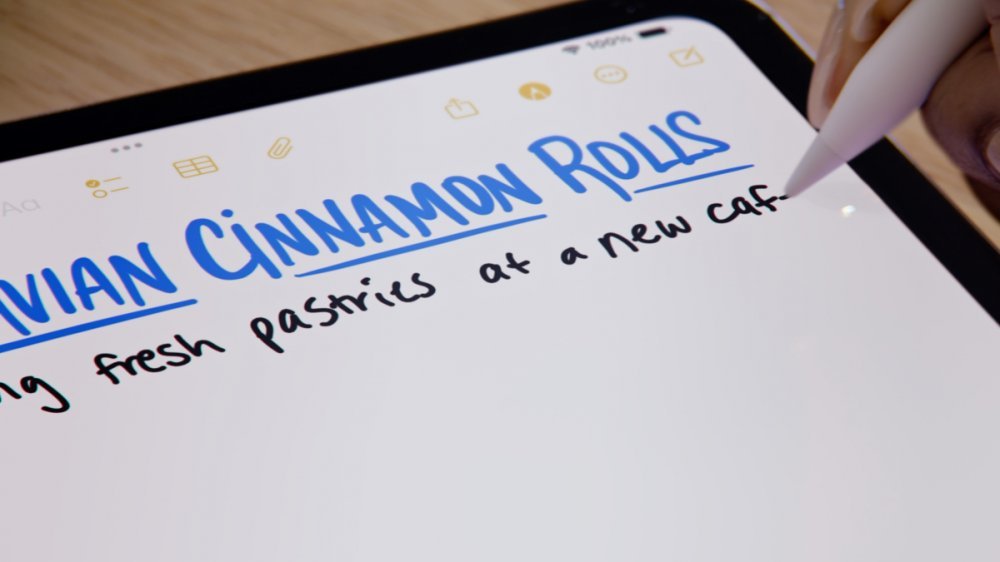 100%
Aa
VIAN CINNAMON ROLLS
fresh pastries at a new caf